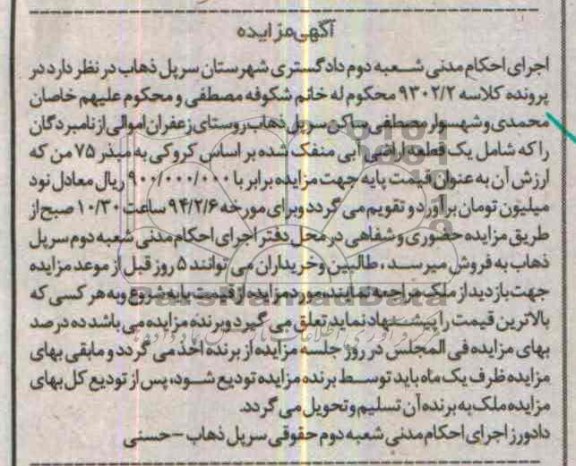 آگهی مزایده
اجرای احکام مدنی شعبه دوم دادگستری شهرستان سرپل ذهاب در نظر دارد در
پرونده کلاسه ۹۳۰۲/۲ محکوم له خانم شکوفه مصطفی و محکوم علیهم خاصان
محمدی و شهسوار مصطفی ساکن سرپل ذهاب روستای زعفران اموالی از نامبردگان
را که شامل یک قطعه اراضی آبی منفک شده بر اساس کروکی به مبذر ۷۵ من که
ارزش آن به عنوان قیمت پایه جهت مزایده برابر با ۹۰۰/۰۰۰/۰۰۰ ریال معادل نود
میلیون تومان برآورد و تقویم می گردد وبرای مورخه ۹۴/۲/۶ ساعت ۱۰/۳۰ صبح از
طریق مزایده حضوری و شفاهی در محل دفتر اجرای احکام مدنی شعبه دوم سرپل
ذهاب به فروش میرسد، طالبین وخریداران می توانند ۵ روز قبل از موعد مزایده
جهت بازدید از ملک مراجعه نمایند، مورد مزایده از قیمت پایه شروع وبه هر کسی که
بالاترین قیمت را پیشنهاد نماید تعلق می گیرد وبرنده مزایده می باشد ده درصد
بهای مزایده فی المجلس در روز جلسه مزایده از برنده اخذ می گردد و مابقی بهای
مزایده ظرف یک ماه باید توسط برنده مزایده تودیع شود، پس از تودیع کل بهای
مزایده ملک به برنده آن تسلیم وتحویل می گردد.
دادورز اجرای احکام مدنی شعبه دوم حقوقی سرپل ذهاب – حسنی